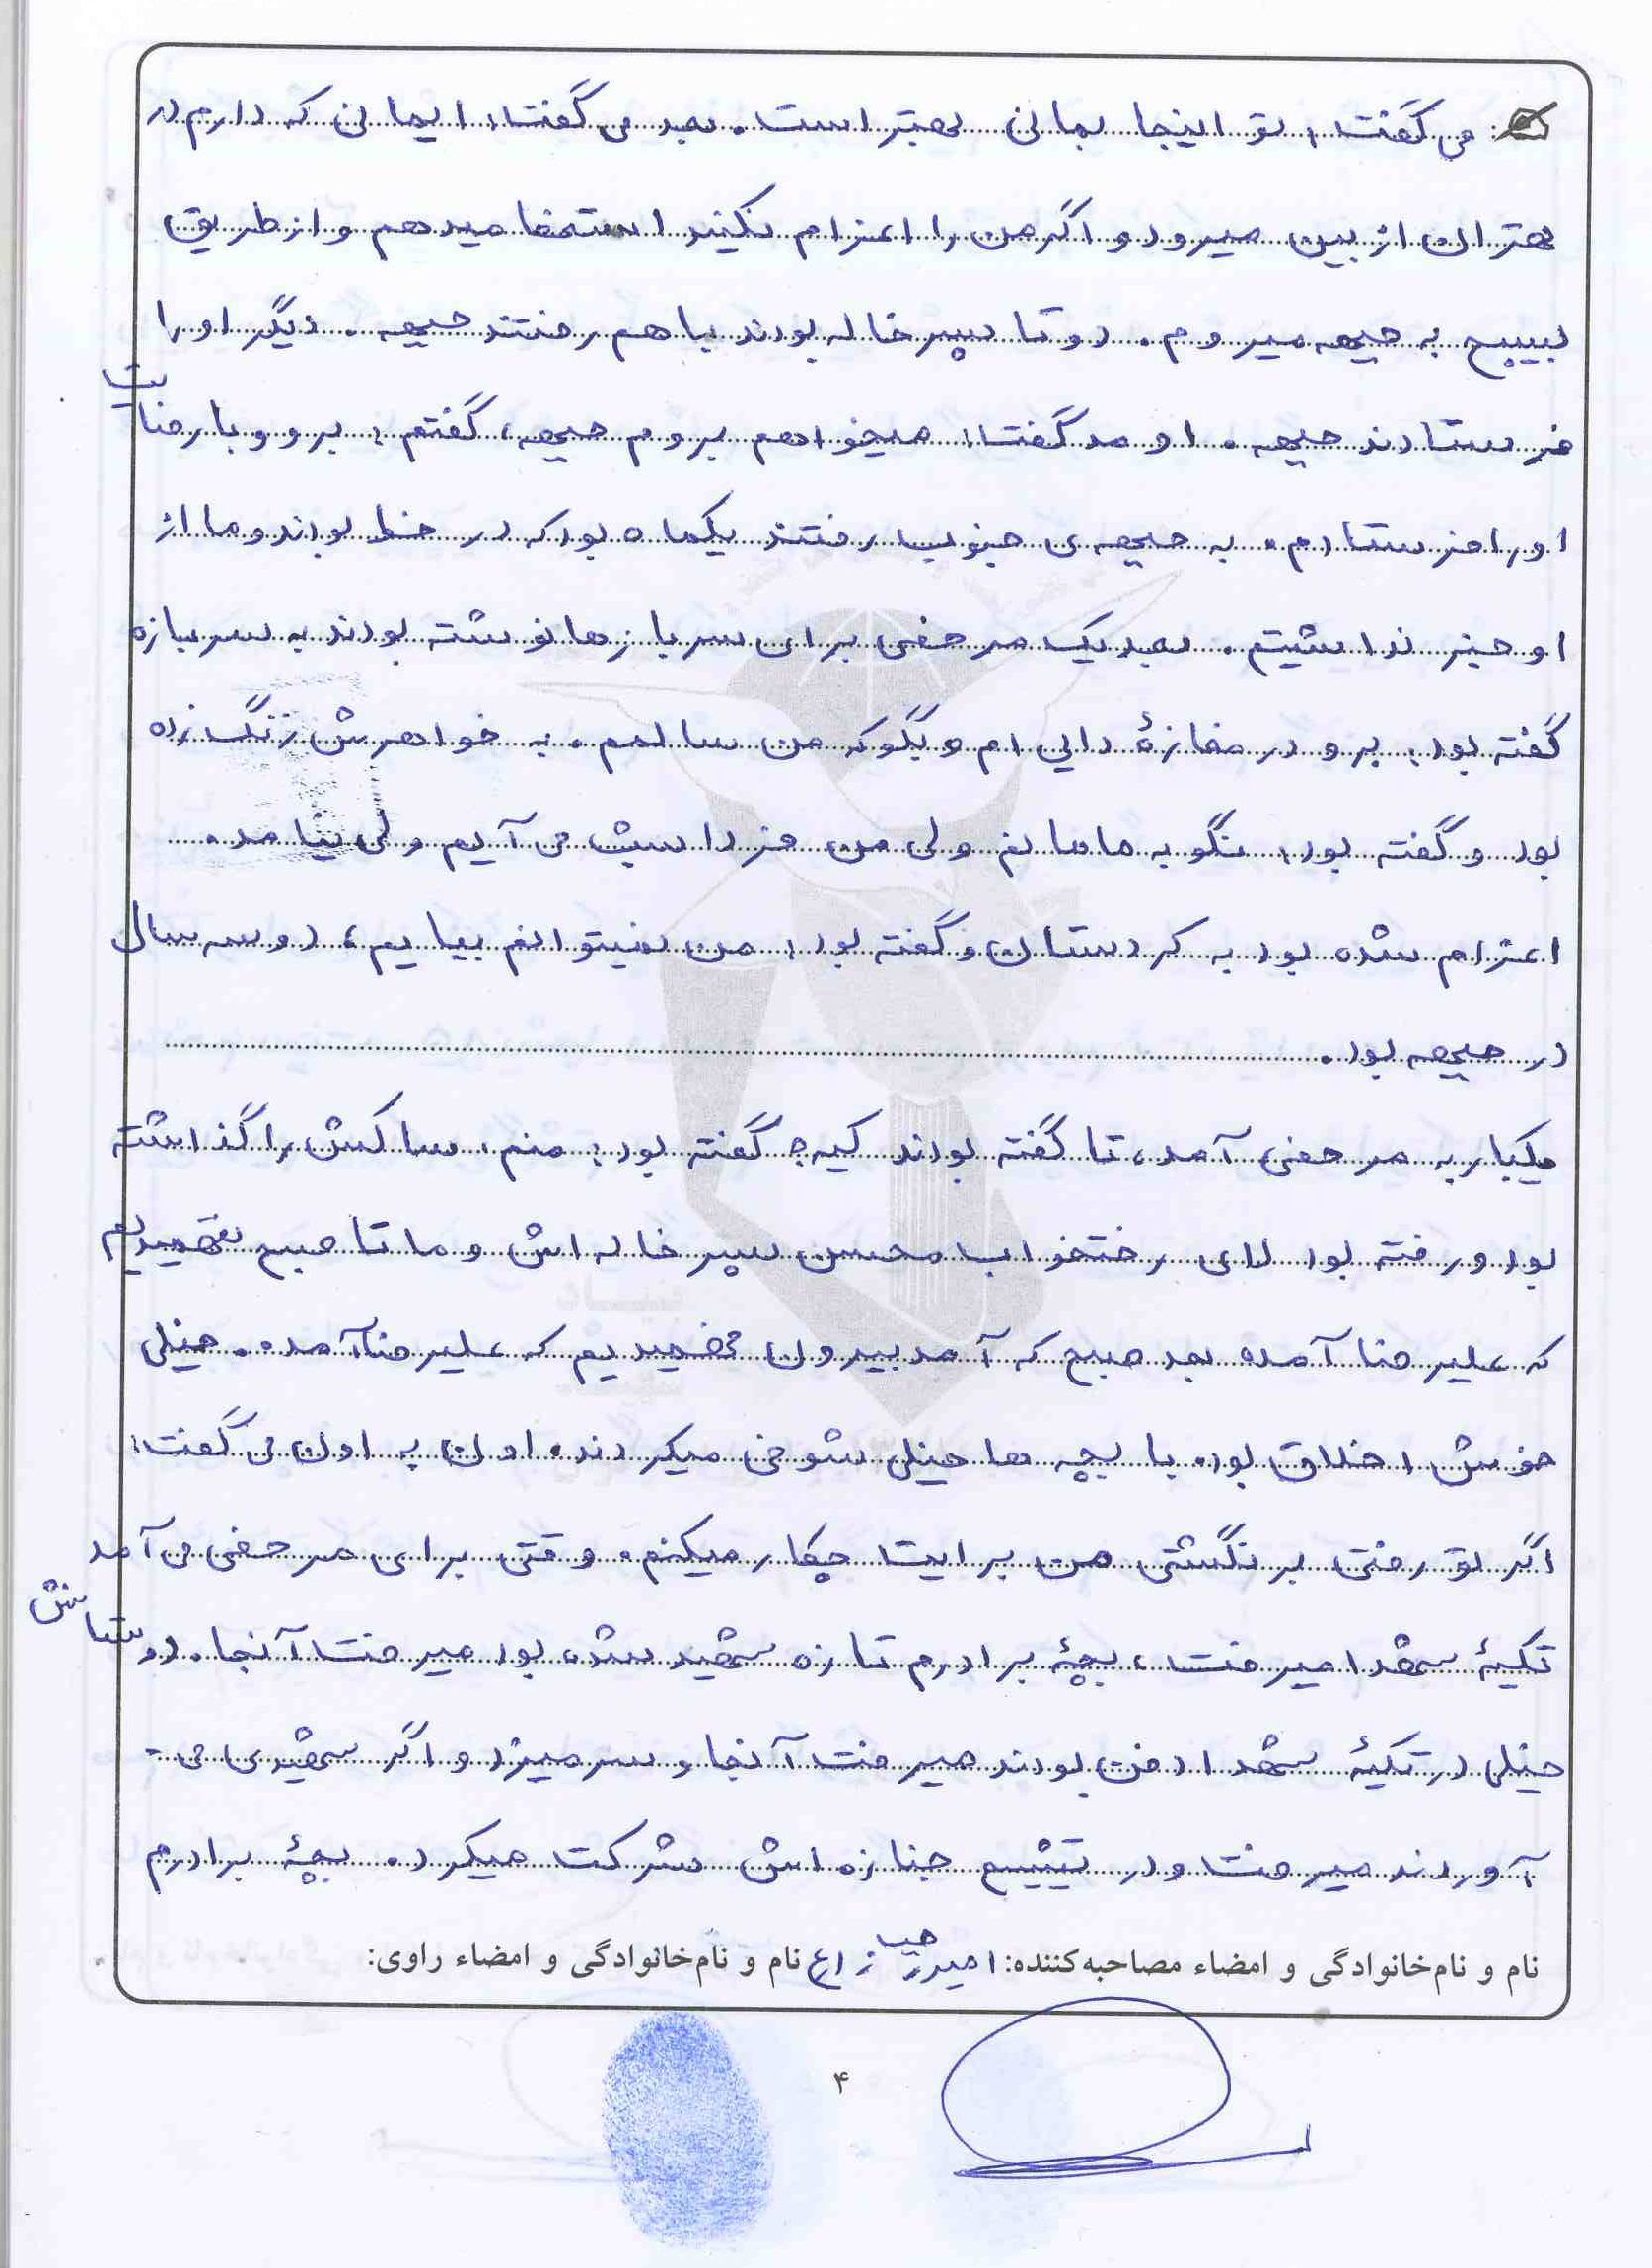 می گفت: تو اینجا بمانی بهتر است. بعد می گفت: ایمانی که دارم در
تهران از بین میرود و اگر من را اعزام نکنید استعفا میدهم و از طریق
بسیج به جبهه میروم. دو تا پسر خاله بودند با هم رفتند جبهه. دیگر او را
فرستادند جبهه. اومد گفت: میخواهم بروم جبهه، گفتم: برو و با رضایت
او را فرستادم. به جبهه ی جنوب رفتند یکماه بود که در خط بودند و ما از
او خبر نداشتیم. بعد یک مرخصی برای سربازها نوشته بودند به سربازه
گفته بود: برو در مغازهٔ دایی ام و بگو که من سالمم. به خواهرش زنگ زده
بود و گفته بود: نگو به مامانم ولی من فردا شب می آیم ولی نیامد.
اعزام شده بود به کردستان و گفته بود: من نمیتوانم بیایم، دو سه سال
در جبهه بود.
یکبار به مرخصی آمد، تا گفته بودند کیه؟ گفته بود: منم، ساکش را گذاشته
بود و رفته بود لای رختخواب محسن پسر خاله اش و ما تا صبح نفهمیدیم
که علیرضا آمده بعد صبح که آمد بیرون فهمیدیم که علیرضا آمده. خیلی
خوش اخلاق بود. با بچه ها خیلی شوخی میکردند. اون به اون می گفت:
اگر تو رفتی برنگشتی من برایت چکار میکنم. وقتی برای مرخصی می آمد
تکیهٔ شهدا میرفت، بچهٔ برادرم تازه شهید شده بود میرفت آنجا. دوستاش
خیلی در تکیهٔ شهدا دفن بودند میرفت آنجا و سر میزد و اگر شهیدی می-
آوردند میرفت و در تشییع جنازه اش شرکت میکرد. بچهٔ برادرم
نام و نام‌خانوادگی و امضاء مصاحبه‌کننده: نام و نام‌خانوادگی و امضاء راوی:
۴